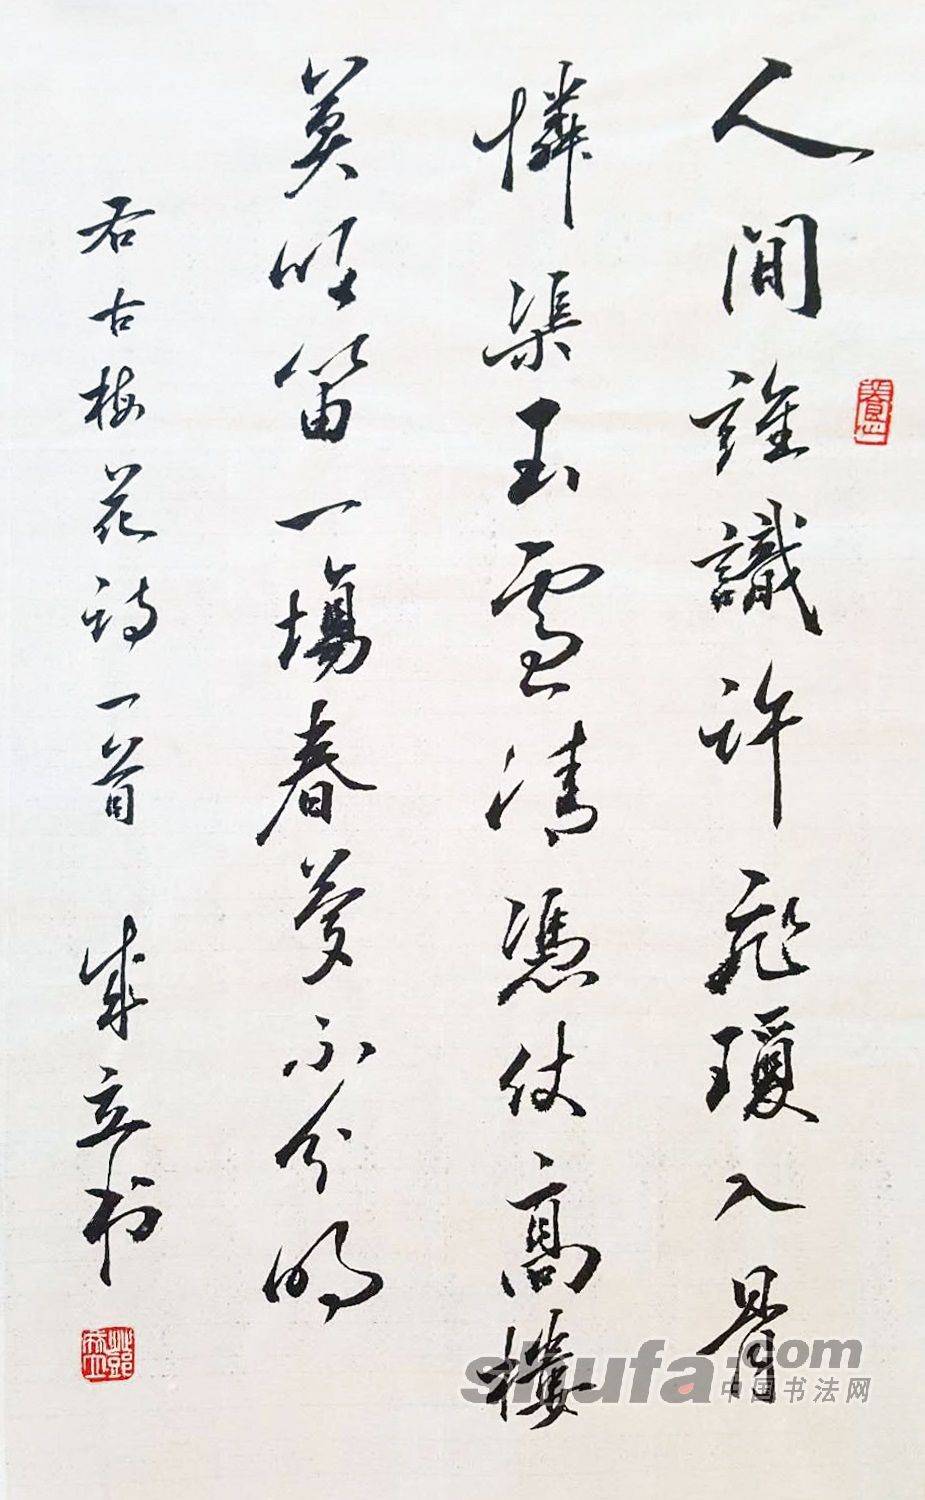 人間誰識許飛瓊入骨
憐渠玉雪清憑仗高樓
莫吹笛一場春夢不分明
右古梅花詩一首 成立书
shufa.com
中国书法网